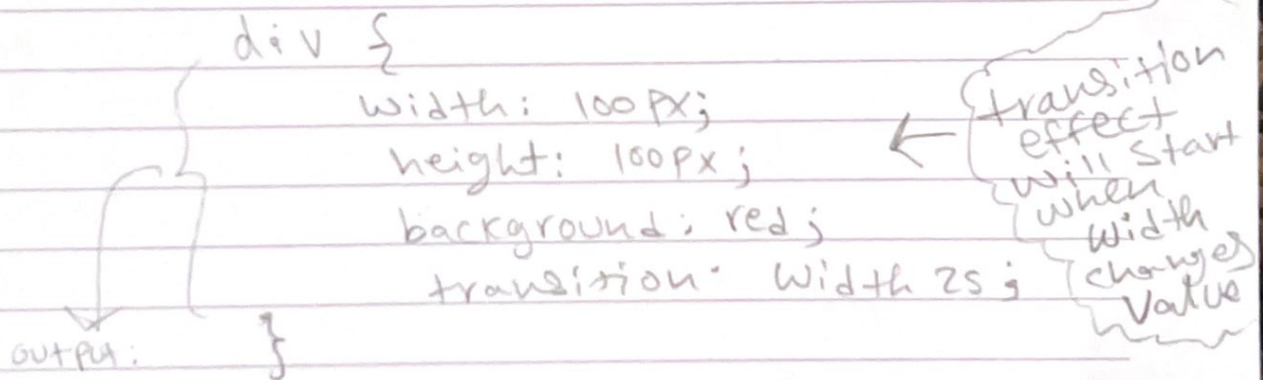 div {
width: 100px;
height: 100px;
background: red;
transition: width 2s;
}
output:
transition
effect
will start
when
width
changes
value